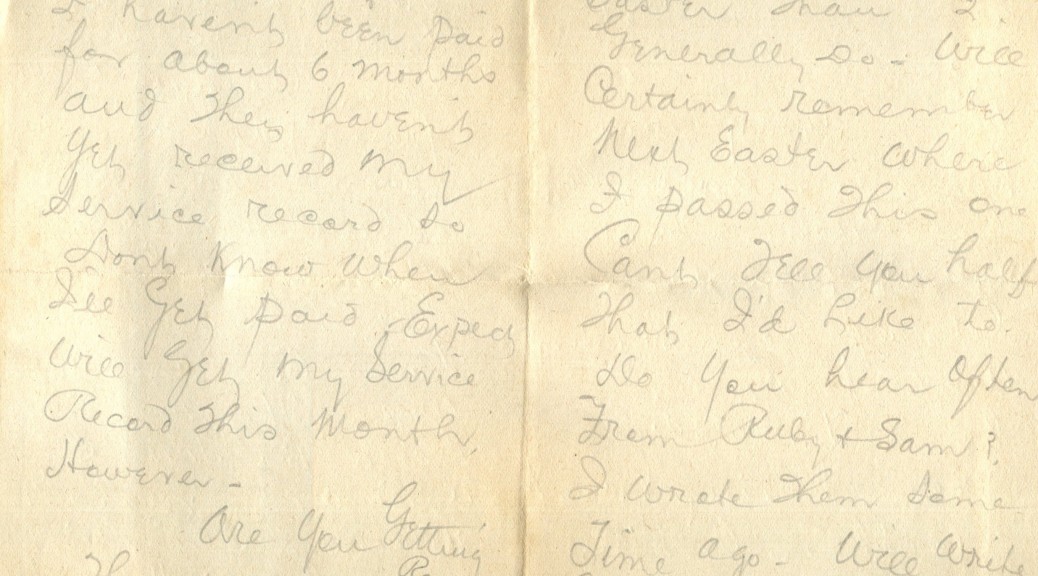 I havent been paid
for about 6 months
and they havent
yet received my
Service record so
Dont Know When
Ill Get paid. Expect
Will Get My Service
Record This Month,
However -
Are You Getting
Easter than I
Generally Do - Will
Certainly remember
Next Easter where
I passed This one
Cant Tell you half
That I'd Like to.
Do You hear Often
From Ruby & Sam?
I wrote Them Some
Time ago - Will Write